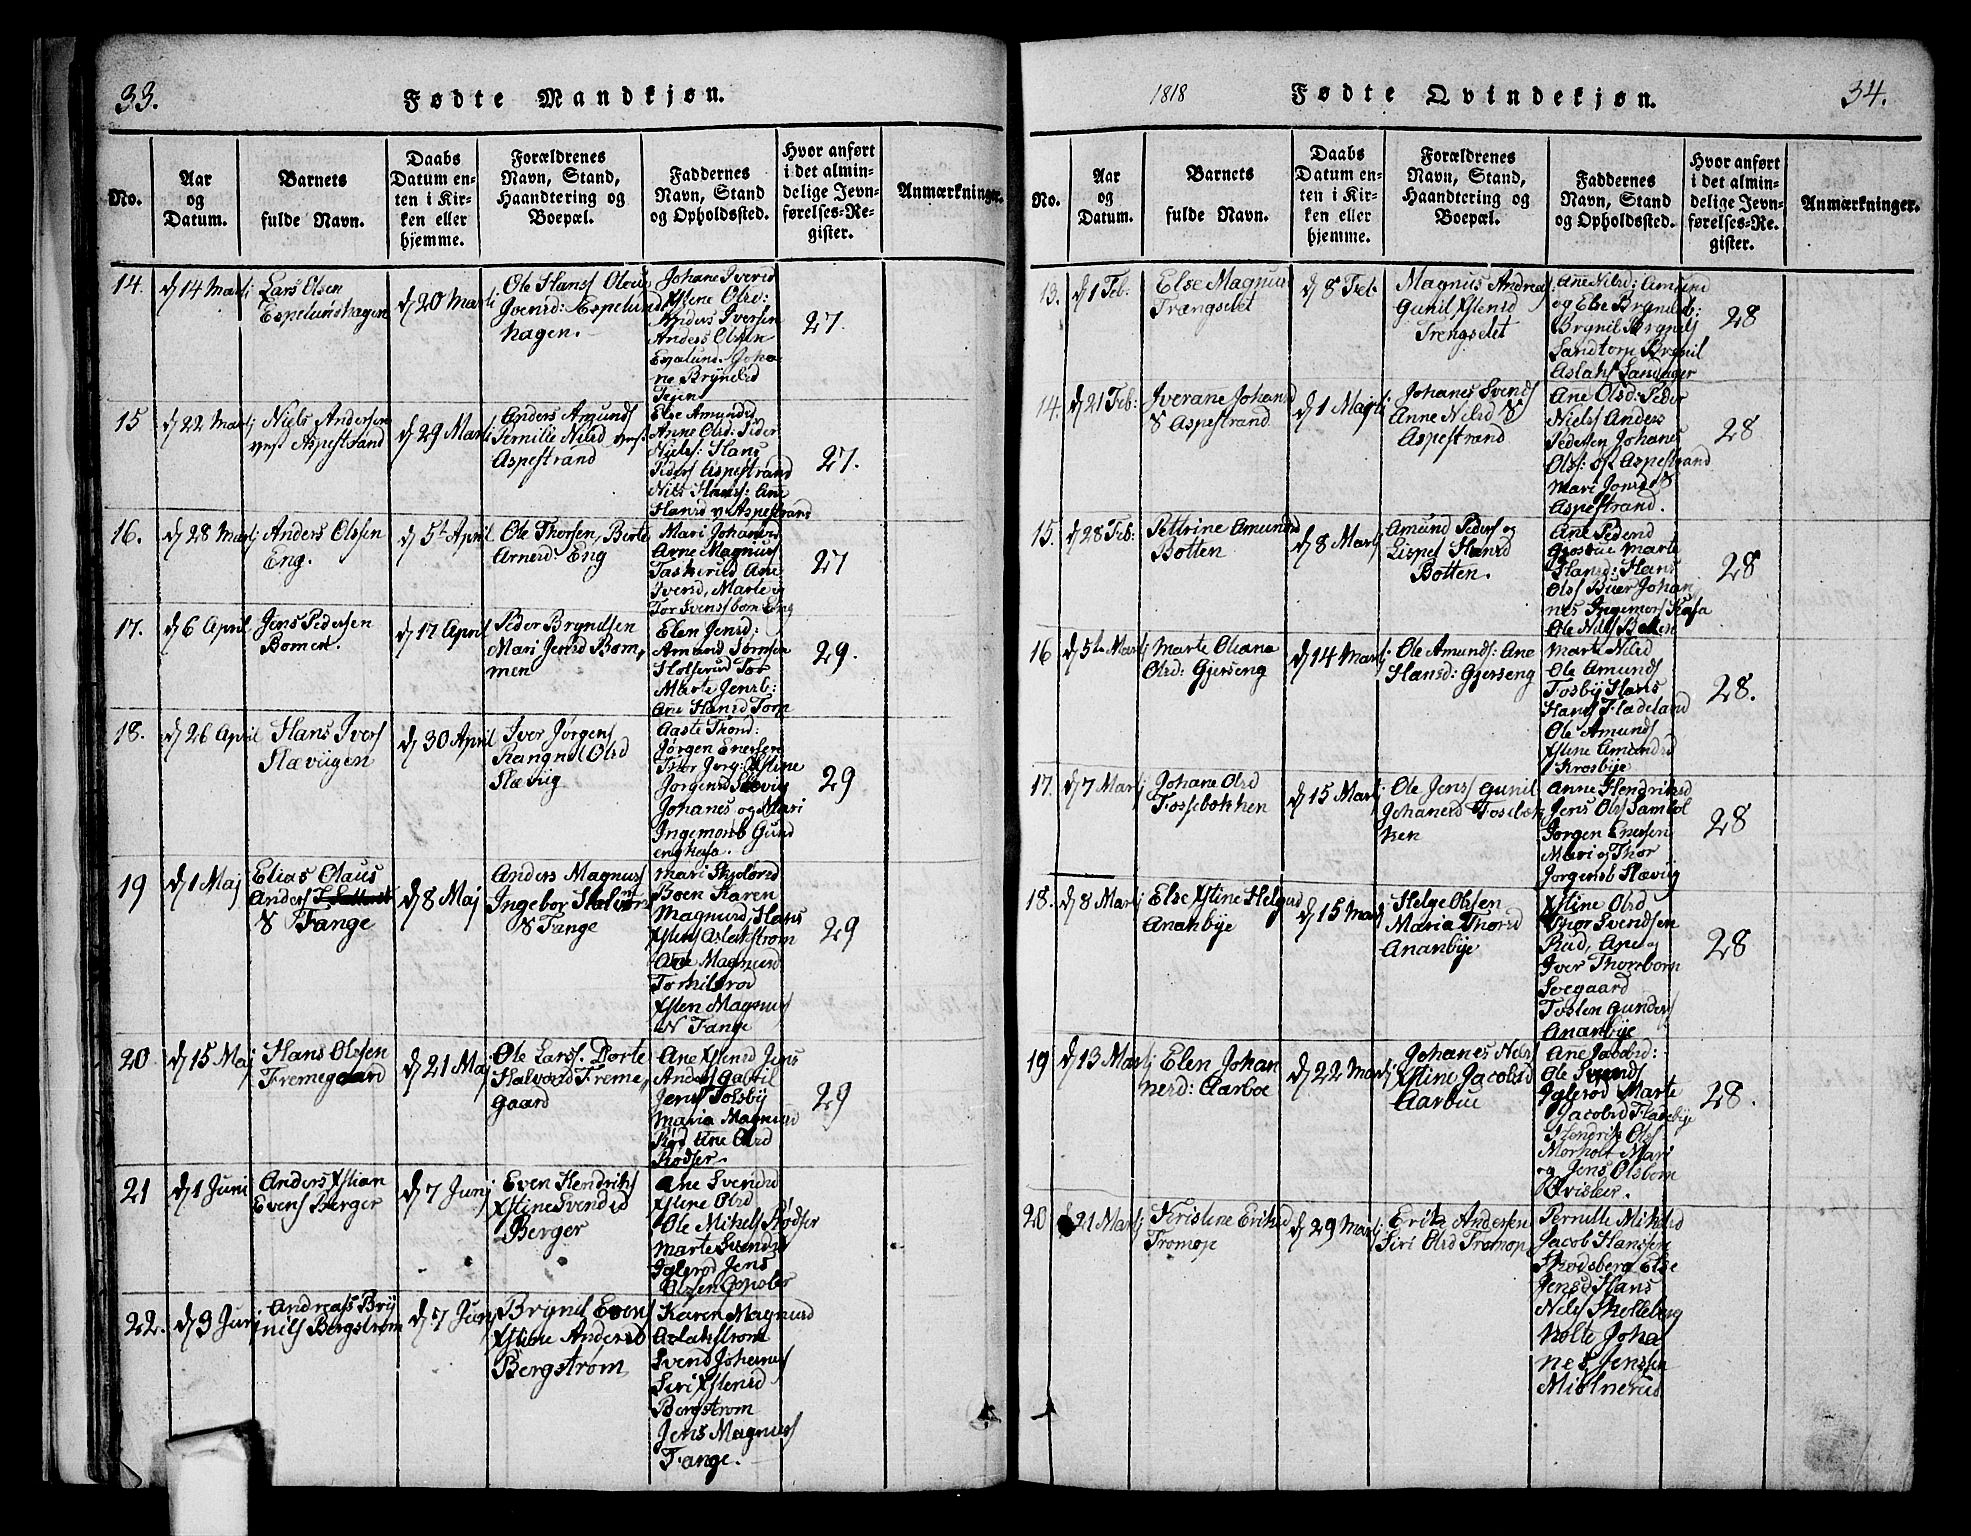 33.
Fødte Mandkjøn.
No.
Aar
og
Datum.
Barnets
fulde Navn.
Daabs
Datum en-
ten i Kir-
ken eller
hjemme.
Forældrenes
Navn, Stand,
Haandtering og
Boepæl.
Faddernes
Navn, Stand
og Opholdssted.
Hvor anført
i det almin-
delige Jevn-
førelses-Re-
gister.
Anmærkninger.
14.
d 14 Marti
Lars Olsen
Espelundshagen
d 20 Marti
Ole Hans Olaus
Iversd: Espelunds
hagen.
Johane Iversd
Xstene Olsd:
Anders Iversen
Anders Olsen
Johan
ne Brynilsd
27.
15
d 22 Martj
Niels Andersen
vest Aspestrand
d 29 Martj
Anders Amunds
Pernille Nilsd vest
Aspestrand
Else Amundsd
Anne Olsd: Peder
Niels: Hans
Peders Aspestrand
Nils Hans: Ane
Hansd v: Aspestrand
27.
16.
d 28 Martj
Anders Olsen
Eng.
d 5t April
Ole Thorsen, Berte
Arnesd Eng
Mari Johansd
Arne Magnus
Taskerud Ane
Iversd, Marte og
Tor Svensborn Eng
27
17.
d 6 April
Jens Pedersen
Bomen.
d 17 April
Peder Bryndsen
Mari Jensd Bom,
men
Elen Jensd:
Amund Tormsen
Holterud Tor
Marte Jensb:
Ane Hansd Torp
29.
18.
d 26 April
Hans Ivers
Slævigen
d 30 April
Iver Jørgens
Rangnil Olsd
Slævig
Aaste Thord:
Jørgen Enersen
Thor Jørg: Xstine
Jørgensd Slævig
Johanes og Mari
Ingemorsb Gund
enghasa.
29
19
d 1 Maj
Elias Olaus
Anders
S Tange
d 8 Maj
Anders Magnus
Ingebor Halvors
S Tange
mari
Boen Karen
Magnusd, Hans
Xstens Aslakstrøm
Ane Magnusd
Torkilsrød
Xsten Magnus
N Tange
29
20
d 15 Maj
Hans Olsen
Fremegaard
d 21 Maj
Ole Lars. Dorte
Halvorsd Freme,
gaard
Ane Xstensd Jens
Anders Gabril
Jens Tosby
Maria Magnusd
Rød Line Olsd
Rødser.
29
21
d 1 Juni
Anders Xstian
Evens Berger
d 7 Junj
Even Hendriks
Xstine Svendsd
Berger
Ane Svendsd
Xstine Olsd
Ole Mikels Rødser
Marte Svendsd
Iglerød Jens
22.
d 3 Juni
Andreas Bry
nils Bergstrøm
d 7 Junj
Brynil Evens
Xstine Andersd
Bergstrøm
Karen Magnusd
Aslakstrøm
Svend Johanes
Siri Xstensd
Bergstrøm
Jens Magnus
Tange.
1818
Fødte Qvindekjøn.
34.
No.
Aar
og
Datum.
Barnets
fulde Navn.
Daabs
Datum en-
ten i Kir-
ken eller
hjemme.
Forældrenes
Navn, Stand,
Haandtering og
Boepæl.
Faddernes
Navn, Stand
og Opholdssted.
Hvor anført
i det almin-
delige Jevn-
førelses-Re-
gister.
Anmærkninger.
13.
d 1 Feb:
Else Magnus
Trængslet
d 8 Feb
Magnus Andreas
Gunil Xstensd
Trengslet
Ane Nilsd: Amund
og Else Brynilsb:
Brynil Brynils
Sandtorp Brynil
Aslaks Sandager
28
14.
d 21 Feb:
Iverane Johansd
S Aspestrand
d 1 Martj
Johanes Svends
Anne Nilsd S
Aspestrand
Ane Olsd: Peder
Niels Anders
Pedersen Johanes
Ols: øst Aspestrand
Mari Jonsd S
Aspestrand.
28
15.
d 28 Feb:
Pettrine Amundsd
Botten
d 8 Martj
Amund Peders og
Lispet Hansd
Botten.
Ane Pedersd
Marte
Hansd: Hans
Ols Buer Johan
nes Ingemors Kasa
Ole Nils
28
16
d 5te Martj
Marte Oliana
Olsd: Gjerseng
d 14 Martj
Ole Amunds: Ane
Hansd: Gjerseng
Marte Nilsd
Ole Amunds
Tosby Hans
Hans Fladeland
Ole Amunds
Xstine Amundsd
Krosbye
28.
17.
d 7 Martj
Johane Olsd
Fossebækken
d 15 Martj
Ole Jens Gunil
Johanesd Fossebæk
ken
Anne Hendriksd
Jens Ols Sambøl
Jørgen Enersen
Mari og Thor
Jorgensb Slævig
28
18.
d 8 Martj
Else Xstine Helgesd
Ananbye
d 15 Martj
Helge Olsen
Maria Thorsd
Ananbye
Xstine Olsd
Thor Svendsen
Rød, Ane og
Iver Thorsborn
Svegaard
Tosten Gunders
Ananbye
28
19
d 13 Martj
Elen Johan
nesd: Aarboe
d 22 Martj
Johanes Nils
Xstine Jacobsd
Aarbue
Ane Jacobsd:
Ole Svends
Iglerød Marte
Jacobsd Fladebye
Hendrik Ols
Morholt Mari
og Jens Olsbørn
Qvisler.
28.
20
21 Martj
Kristine Eriksd
Tromop
d 29 Martj
Erik Andersen
Siri Olsd Tromop
Pernille Mikelsd
Jacob Hansen
Skodsberg Else
Jensd Hans
Nils Skolleborg
holte Joha
nes Jensen